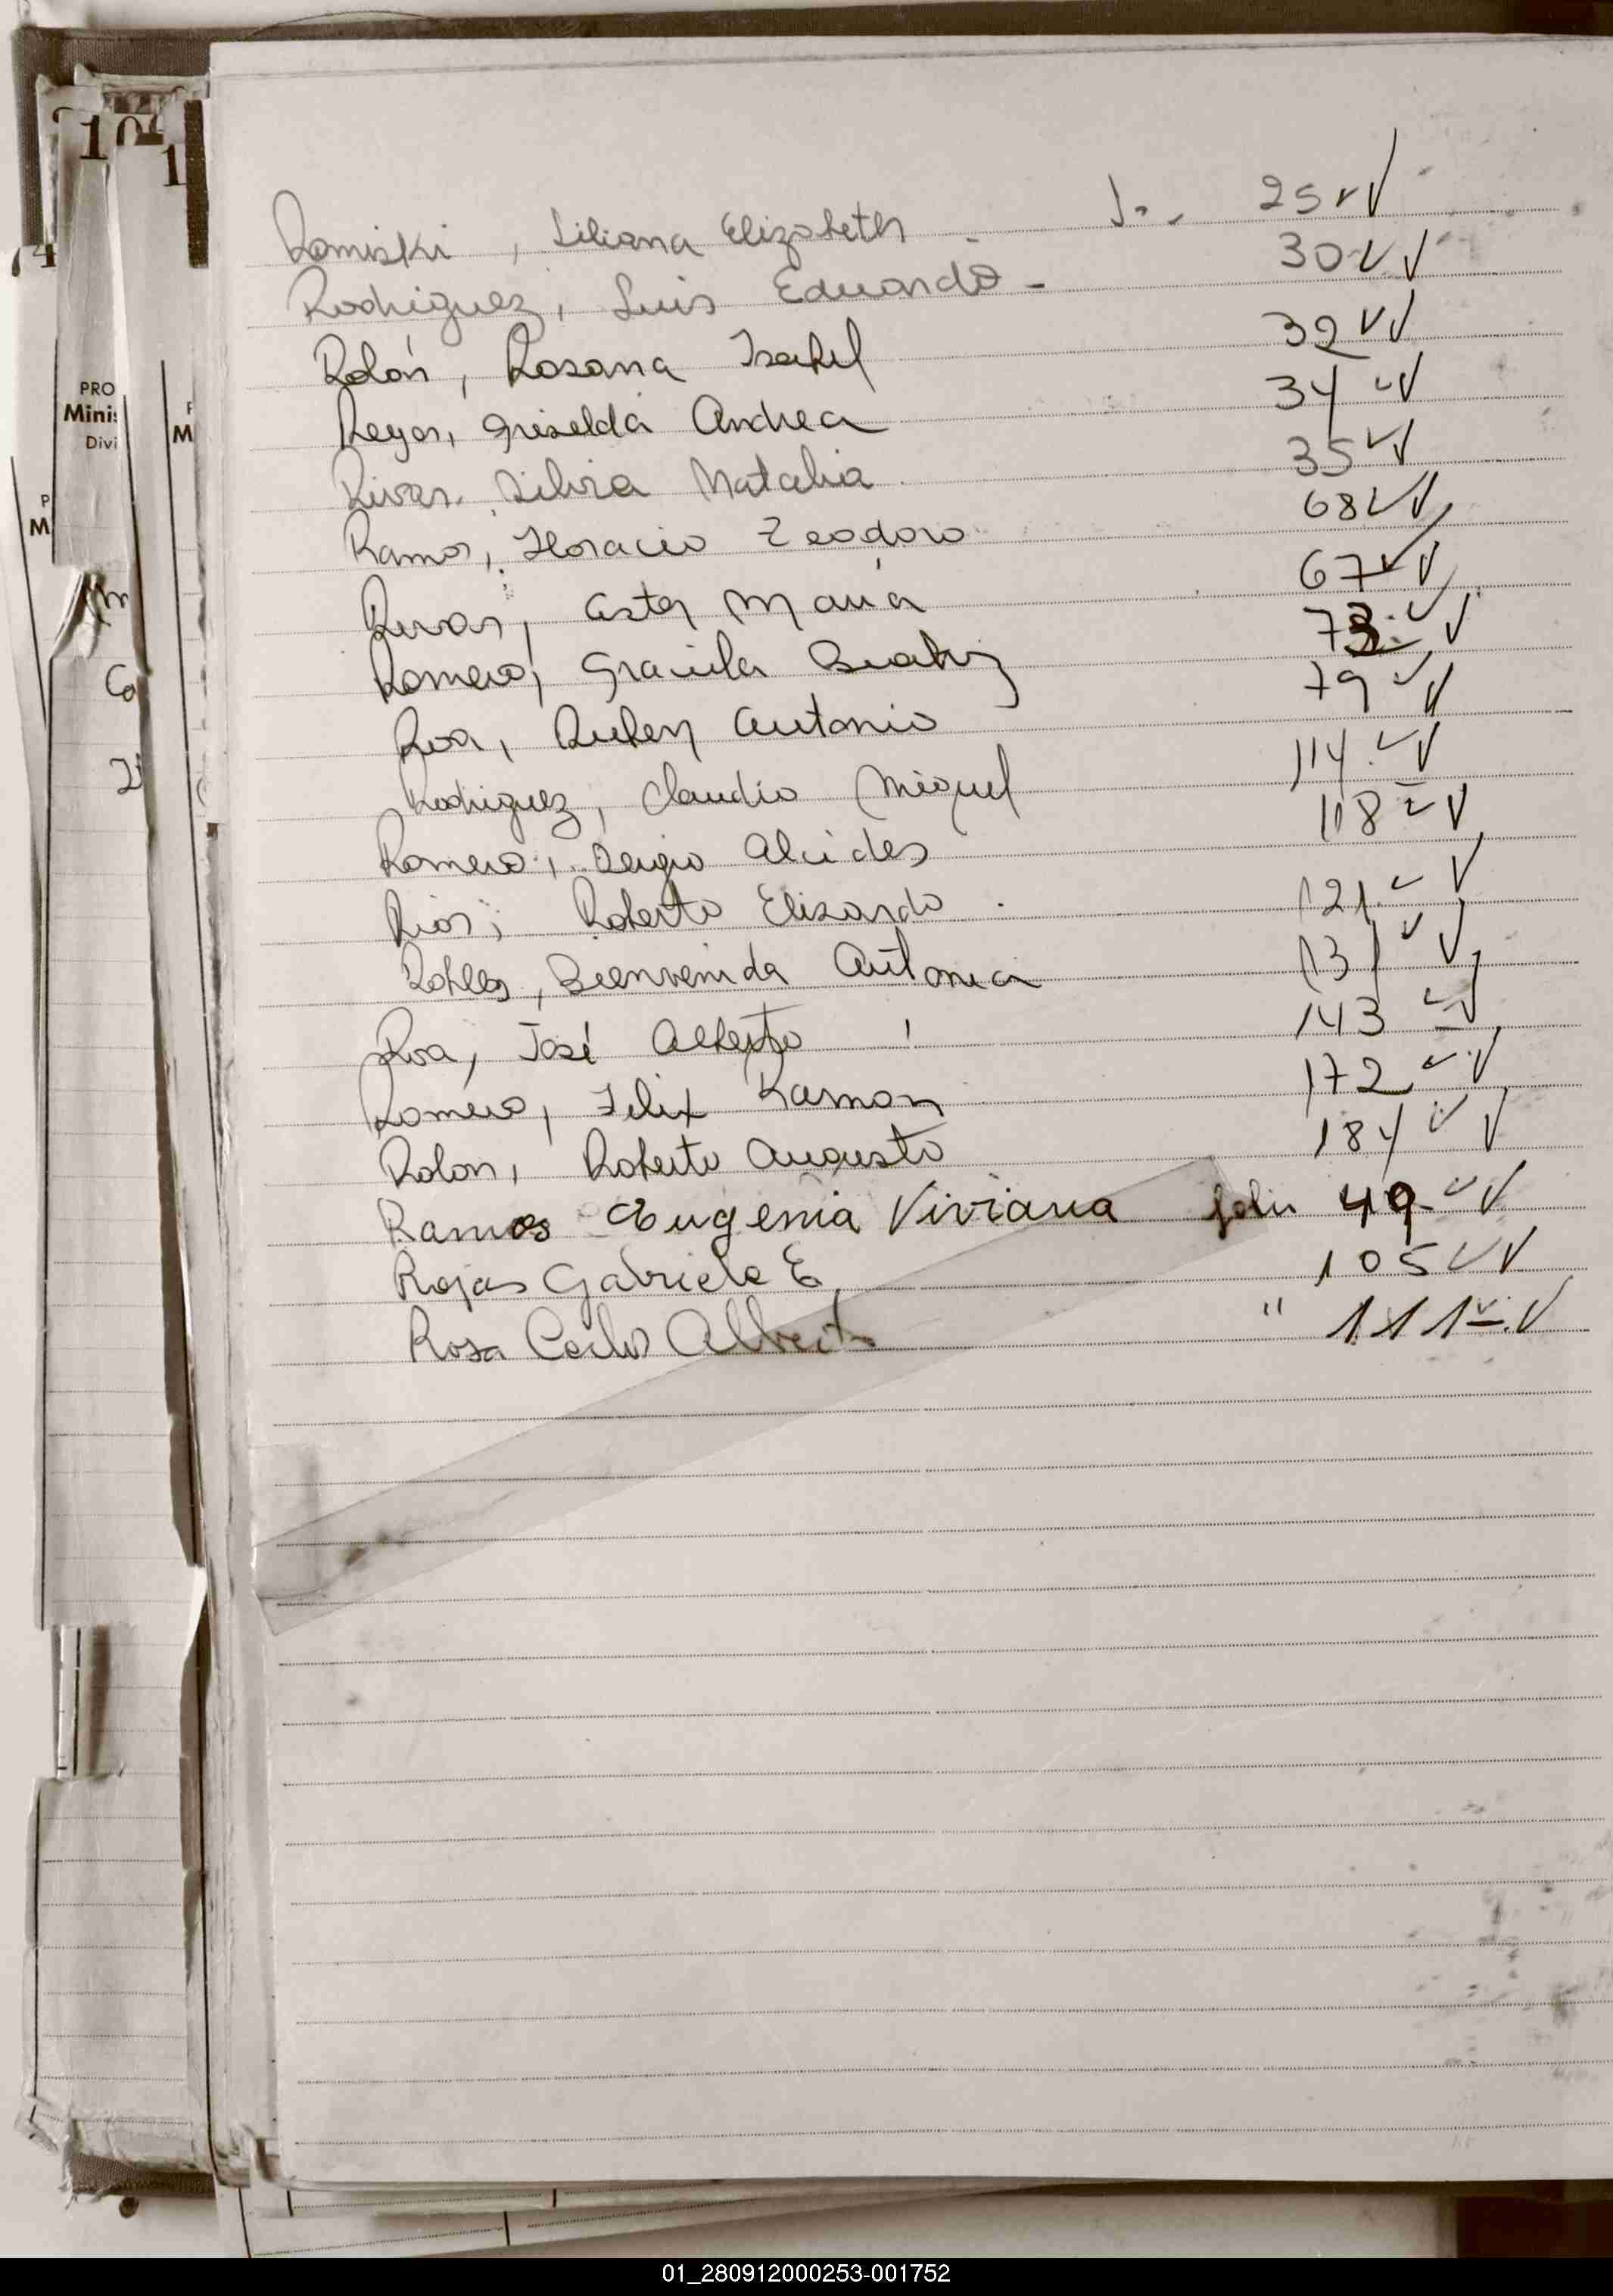 104
1
74
PRO
Minis
Divi
F
M
P
M
Romiski, Liliana Elizabeth - Fo. 25
Rodriguez, Luis Eduardo - 30
Rolón, Rosana Isabel 32
Reyes, Griselda Andrea 34
Rivas, Silvia Natalia 35
Ramos, Horacio Teodoro 68
Rivas, Ester María 67
Romero, Graciela Beatriz 73
Roa, Ruben Antonio 79
Rodriguez, Claudio Miguel 114
Romero, Sergio Alcides 118
Rios, Roberto Elisardo 121
Robles, Bienvenida Antonia 131
Roa, José Alberto 143
Romero, Felix Ramon 172
Rolon, Roberto Augusto 184
Ramos Eugenia Viviana folio 49
Rojas Gabriela E. 105
Rosa Carlos Alberto " 111
01_280912000253-001752